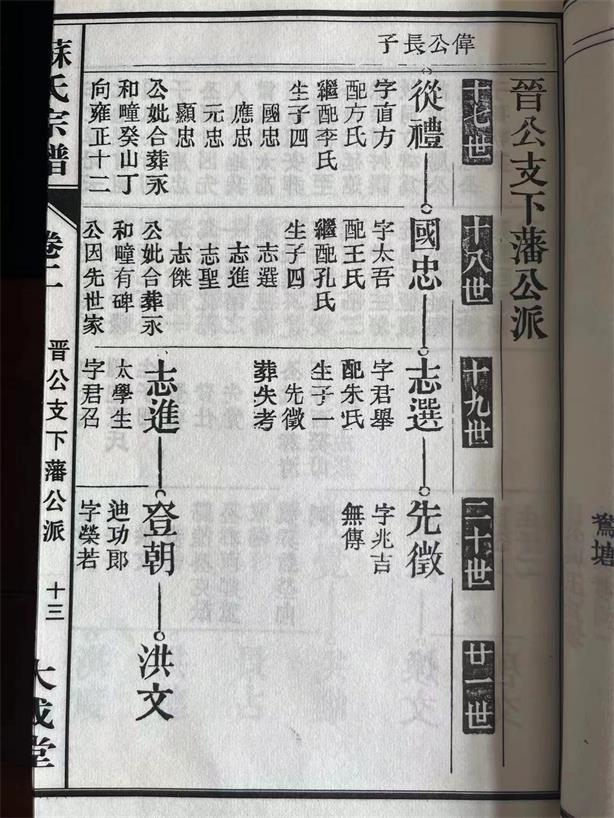 晉公支下藩公派
十七世
十八世
十九世
二十世
廿一世
偉公長子
從禮
字直方
配方氏
繼配李氏
生子四
國忠
應忠
元忠
顯忠
公妣合葬永
和疃癸山丁
向雍正十二
國忠
字太吾
配王氏
繼配孔氏
生子四
志選
志進
志聖
志傑
公妣合葬永
和疃有碑
公因先世家
志選
字君舉
配朱氏
生子一
先徵
葬失考
先徵
字兆吉
無傳
志進
太學生
字君召
登朝
迪功郎
字榮若
洪文
蘇氏宗譜
卷二
晉公支下藩公派
十三
大成堂